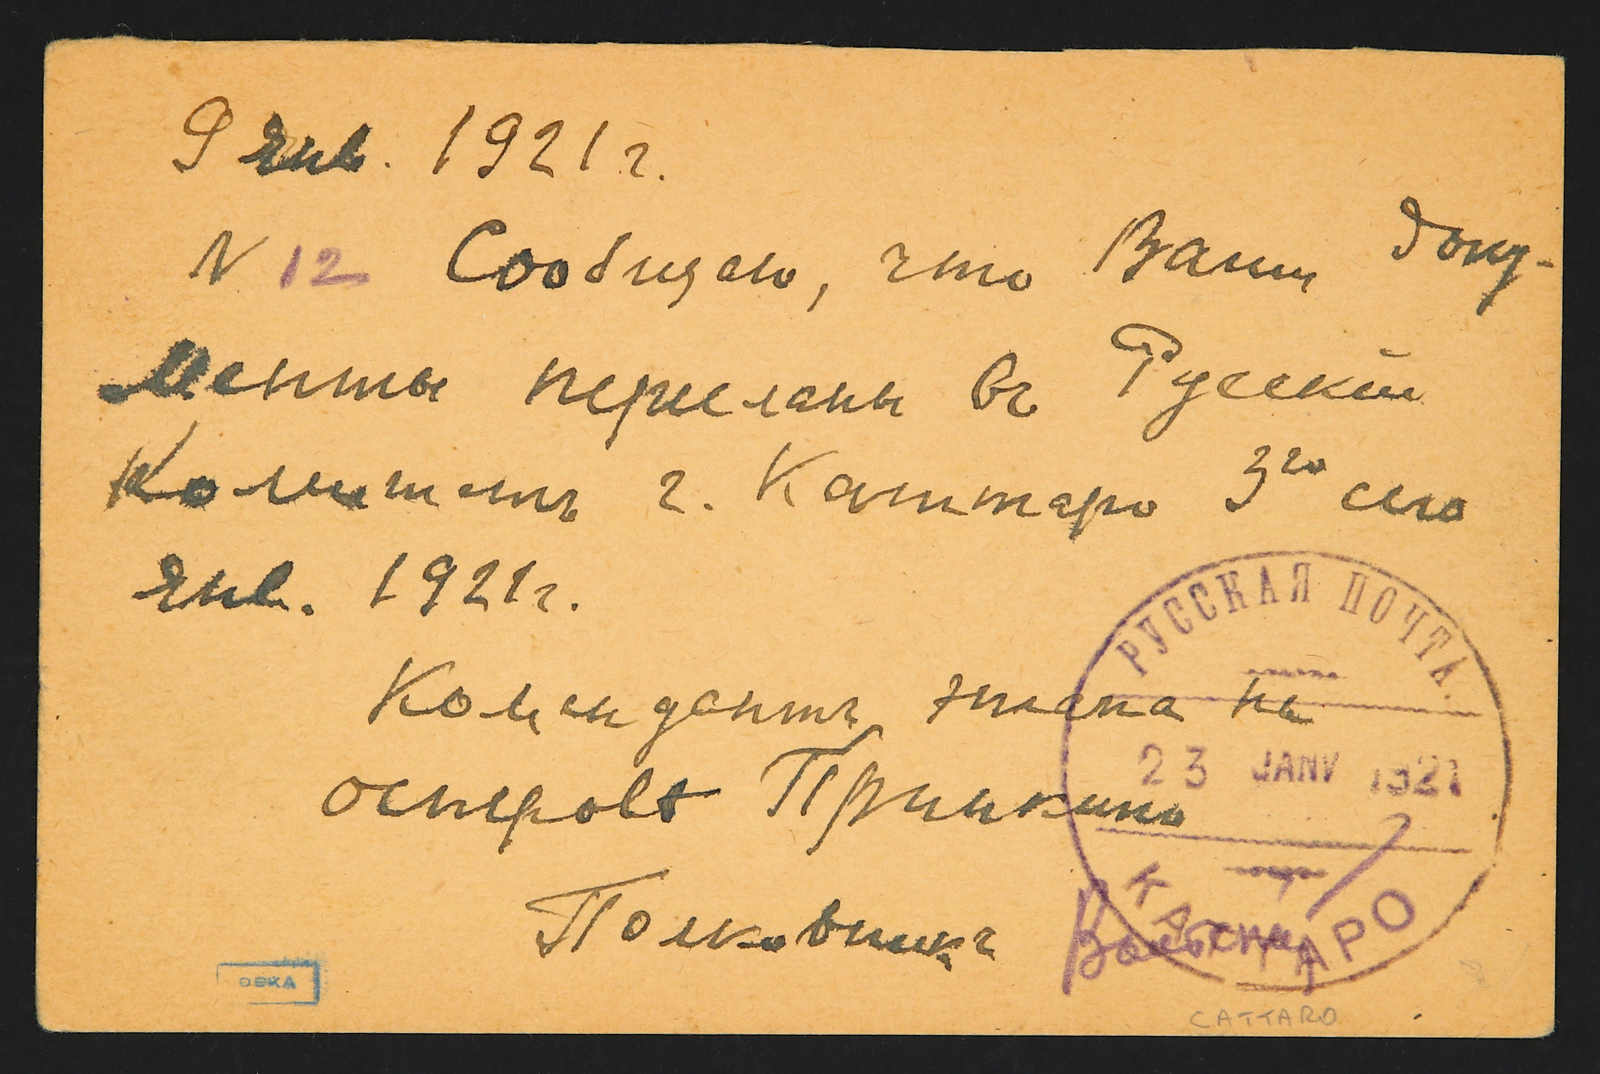 9 Янв. 1921 г.
N 12 Сообщаю, что Ваши доку-
менты пересланы въ Русскій
Комитетъ г. Каттаро 3го сего
янв. 1921 г.
Комендантъ этапа на
островѣ Принкипо
Полковникъ
РУССКАЯ ПОЧТА.
23 JANV 1921
КАТТАРО
CATTARO